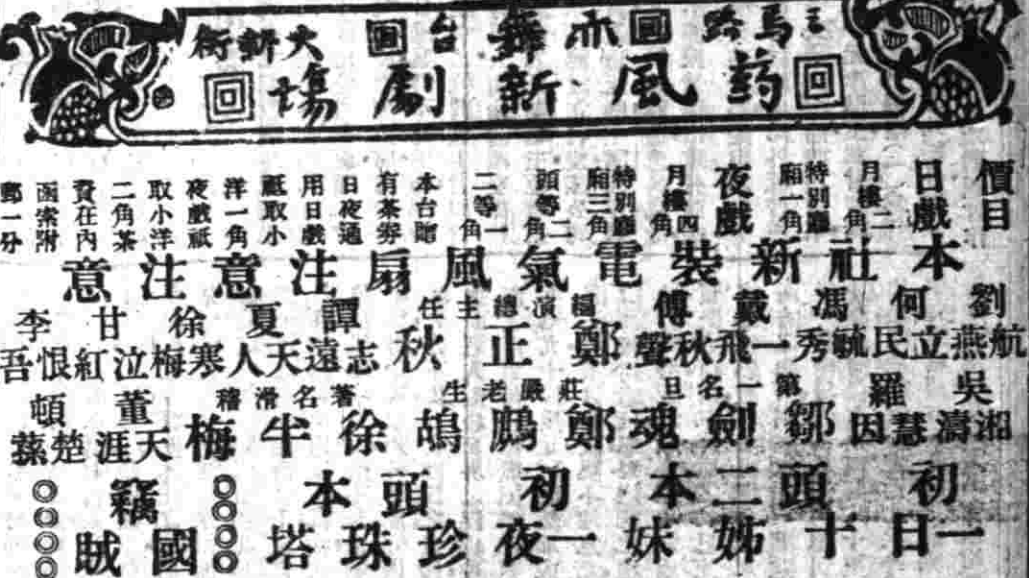 三馬路 亦舞台 大新街
葯風新劇場
價目
日戲
月樓二角
特別廳廂一角
夜戲
月樓四角
特別廳廂三角
頭等二角
二等一角
本台贈
有茶劵
日夜通
用日戲
祗取小
洋一角
夜戲祗
取小洋
二角茶
資在內
函索附
郵一分
本社新裝電氣風扇注意注意
劉航燕 何立民 馮毓秀 戴一飛 傅秋聲
編演總主任
鄭正秋
譚志遠 夏天人 徐寒梅 甘泣紅 李恨吾
吳湘濤 羅慧因
第一名旦
鄒劍魂
莊嚴老生
鄭鷓鴣
著名滑稽
徐半梅
董天涯 頓楚蓀
初一日
頭二本
十姊妹
初一夜
頭本
珍珠塔
竊國賊